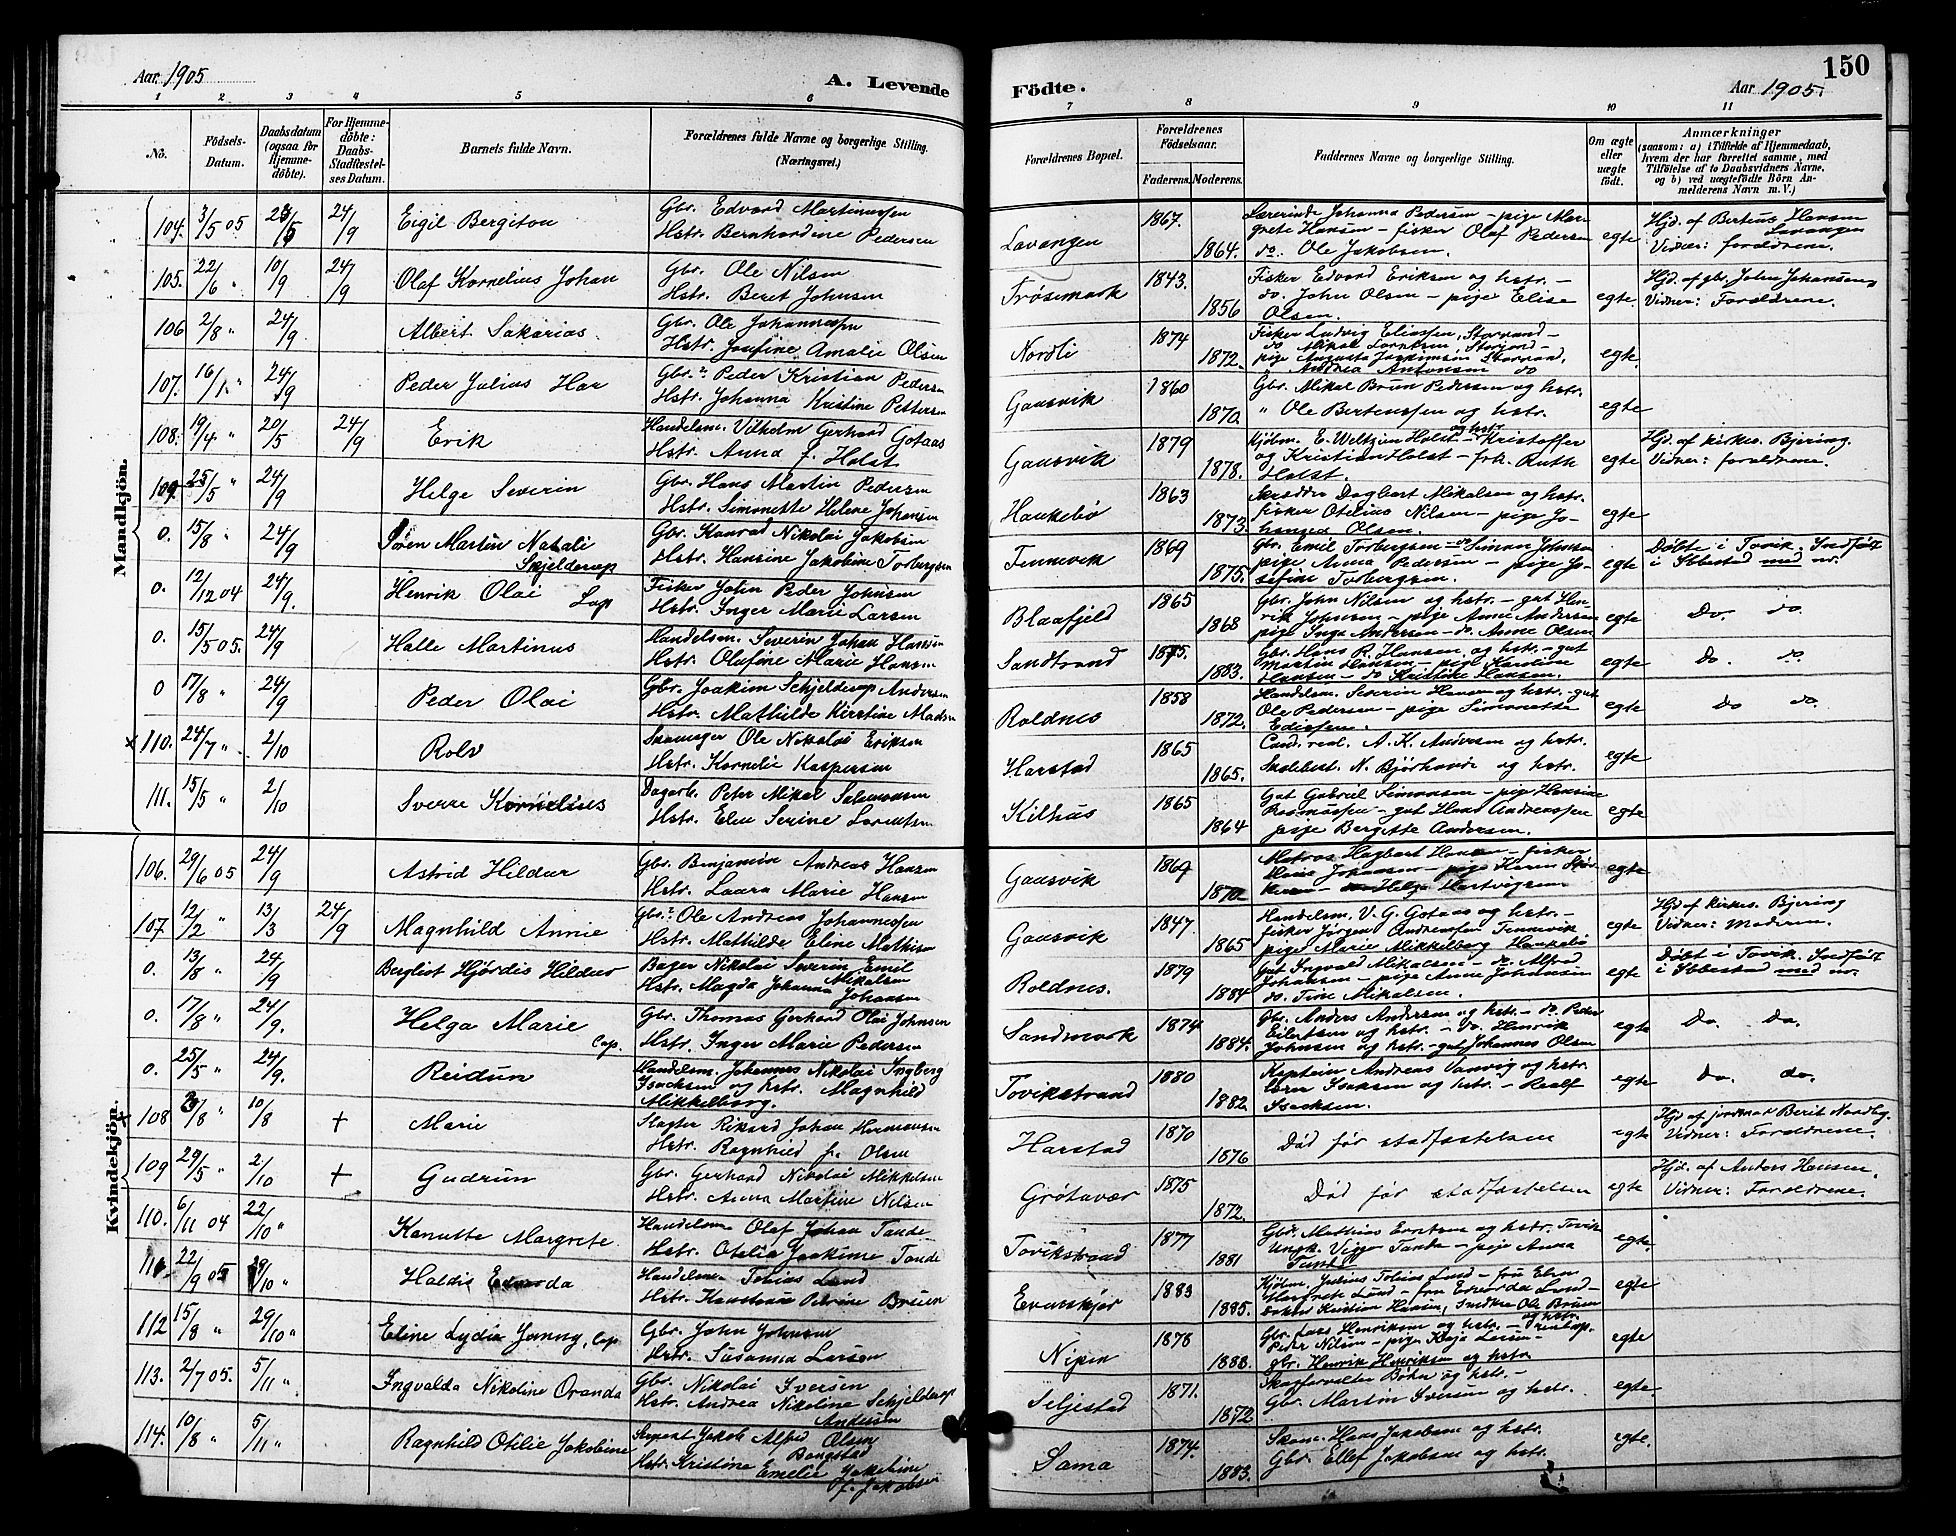 Aar 1905
A. Levende
Födte.
Aar 1905.
150
1 2 3 4 5 6 7 8 9 10 11
No. Födsels-Datum. Daabsdatum (ogsaa for Hjemmedöbte). For Hjemmedöbte: Daabs-Stadfæstelses Datum. Barnets fulde Navn. Forældrenes fulde Navne og borgerlige Stilling. (Næringsvei.)
Forældrenes Bopæl. Forældrenes Födselsaar. Faderens. Moderens. Faddernes Navne og borgerlige Stilling. Om ægte eller uægte født. Anmærkninger (saasom: a) i Tilfælde af Hjemmedaab, hvem der har forrettet samme, med Tilföielse af to Daabsvidners Navne, og b) ved uægtefödte Börn Anmelderens Navn m. V.)
Mandkjön.
104. 3/5 05 24/9 Eigil Bergiton
Gbr. Edvard Martinussen
Hstr. Bernhardine Pedersen
Lavangen 1867. 1864.
Lærerinde Johanna Pedersen – pige Margrete Hansen – fisker Olaf Pedersen
do. Ole Jakobsen. egte
Hjd. af Berteus Hansen Lavangen
Vidner: forældrene.
105. 22/6 " 10/9 24/9 Olaf Kornelius Johan
Gbr. Ole Nilsen
Hstr. Beret Johnsen
Trøsemark 1843. 1856
Fisker Edvard Eriksen og hstr. –
do. John Olsen – pige Elise
Olsen. egte.
Hjd. af gbr. John Johansen
Vidner: Forældrene.
106 2/8 " 24/9 Albert Sakarias
Gbr. Ole Johannessen
Hstr. Josefine Amalie Olsen
Nordli 1874 1872.
Fisker Ludvig Eliassen, Storjord –
do Mikal Storjord –
pige Augusta
Andrea Antonsen do egte.
107. 16/1 " 24/9 Peder Julius Har
Gbr. Peder Kristian Pedersen
Hstr. Johanna Kristine Pettersen
Gausvik 1860 1870.
Gbr. Mikal Brun Pedersen og hstr.
" Ole Bertenssen og hstr. egte
108. 19/4 " 20/5 24/9 Erik
Handelsm. Vilhelm Gerhard Gotaas
Hstr. Anna f. Holst
Gausvik 1879 1878.
Kjøbm. E. Weltzin Holst og hstr. – Kristoffer
og Kristian Holst – frk. Ruth
Holst. egte
Hjd. af kirkes. Bjering.
Vidner: forældrene.
109. 25/5 " 24/9 Helge Severin
Gbr. Hans Martin Pedersen
Hstr. Simonette Helene Johansen
Haukebø 1863 1873.
Skrædder Dagbart Mikalsen og hstr.
fisker Otelius Nilsen – pige Johanna Olsen. egte
0. 15/8 " 24/9 Søren Martin Natali Skjelderup
Gbr. Konrad Nikolai Jakobsen
Hstr. Hansine Jakobine Torbergsen
Tennevik 1869 1875.
Gbr. Emil Torbergsen – do Simon Johnsen
pige Anna Pedersen – pige Josefine Torbergsen. egte
Døbte i Tovik. Indført
i Ibbestad med nr.
0. 12/12 04 24/9. Henrik Olai Lap
Fisker John Peder Johnsen
Hstr. Inger Marie Larsen
Blaafjeld 1865 1868
Gbr. John Nilsen og hstr. – gut Henrik Johnsen – pige Anne Andersen
pige Inga Andersen – do. Anne Olsen egte
Do. do.
0. 15/5 05. 24/9 Halle Martinus
Handelsm. Severin Johan Hansen
Hstr. Olufine Marie Hansen
Sandstrand 1875. 1883.
Gbr. Hans R. Hansen og hstr. – gut
Martin Hansen – pige Karoline
Hansen – do Kristine Hansen. egte
Do. do.
0 17/8 " 24/9 Peder Olai
Gbr. Joakim Schjelderup Andersen
Hstr. Mathilde Kirstine Madsen
Roldnes 1858 1872.
Handelsm. Severin Hansen og hstr. – gut
Ole Pedersen – pige Simonette
Edissen. egte
do do.
× 110. 24/7 " 2/10 Rolv
Skomager Ole Nikolai Eriksen
Hstr. Kornelie Kaspersen
Harstad 1865 1865.
Cand. real. A. K. Andersen og hstr.
N. Bjørhovde og hstr. egte
111. 15/5 " 2/10 Sverre Kornelius
Dagarb. Peter Mikal Salamonsen
Hstr. Elen Serine Lorentsen
Kilhus 1865 1864
Gut Gabriel Simonsen – pige Hansine
Rasmussen – gut Hans Andreassen
pige Bergitte Andersen. egte
Kvindekjön.
106. 29/6 05 24/9 Astrid Hildur
Gbr. Benjamin Andreas Hansen
Hstr. Laura Marie Hansen
Gausvik 1869 1870
Matros Hagbart Hansen – fisker
Johansen – pige Karen
Helga Hartvigsen egte
107. 12/2 " 13/3 24/9 Magnhild Annie
Gbr. Ole Andreas Johannessen
Hstr. Mathilde Eline Mathisen
Gausvik 1847. 1865
Handelsm. V. G. Gotaas og hstr. –
fisker Jørgen Andreassen Tennevik
pige Marie Mikkelborg Haukebø egte
Hjd. af kirkes. Bjering
Vidner: Moderen.
0. 13/8 " 24/9 Bergliot Hjørdis Hildur
Bager Nikolai Severin Emil Mikalsen
Hstr. Magda Johanna Johansen
Roldnes. 1879 1884
Gut Ingvald Mikalsen – do. Alfred
Johansen – pige Anne Johansen
do. Tine Mikalsen. egte
Døbt i Tovik. Indført
i Ibbestad med nr.
0. 17/8 " 24/9. Helga Marie Lap.
Gbr. Thomas Gerhard Olai Johnsen
Hstr. Inger Marie Pedersen
Sandmark 1874 1884.
Gbr. Anders Andersen og hstr. – do. Peder
Eilertsen og hstr. – do. Henrik
Johnsen og hstr. – gut Johannes Olsen egte
Do. Do.
0. 25/5 " 24/9. Reidun
Handelsm. Johannes Nikolai Ingberg
Isacksen og hstr. Magnhild
Mikkelborg.
Tovikstrand 1880 1882
Kaptein Andreas Vanvig og hstr.
lærer Isaksen og hstr. – Roalf
Isachsen. egte
Do. do.
× 108 3/8 " 10/8 + Marie
Slagter Rikard Johan Hermansen
Hstr. Ragnhild f. Olsen
Harstad 1870 1876
Død før stadfæstelsen egte
Hjd. af jordmor Berit Nordby.
Vidner: Forældrene.
109 29/5 " 2/10 + Gudrun
Gbr. Gerhard Nikolai Mikkelsen
Hstr. Anna Martine Nilsen
Grøtavær 1875 1872.
Død før stadfæstelsen egte
Hjd. af Anders Hansen.
Vidner: Forældrene.
110. 6/11 04 22/10 " Kanutte Margrete
Handelsm. Olaf Johan Tande
Hstr. Otelia Joakime Tande
Tovikstrand 1877 1881
Gbr. Mathias Erntsen og hstr. Tovik
Ungk. Viggo Tande – pige Anna
Tande egte.
111. 22/9 05 29/10 " Haldis Edvarda
Handelsm. Tobias Lund
Hstr. Konstanse Petrine Bruun
Evenskjer 1883 1885.
Kjøbm. Julius Tobias Lund – fru Elen
Margrete Lund – fru Edvarda Lund –
Kristian Hansen, Ole Bruun og hstr. egte
112 15/8 " 29/10 " Eline Lydia Jenny, Lap.
Gbr. John Johnsen
Hstr. Susanna Larsen
Nipen 1878 1888.
Gbr. Lars Henriksen og hstr. –
Peder Nilsen – pige Kaja Larsen –
gbr. Henrik Henriksen og hstr. egte
113. 2/7 05. 5/11 " Ingvalda Nikoline Oranda
Gbr. Nikolai Iversen
Hstr. Andrea Nikoline Schjelderup Andersen
Seljestad 1871. 1872
Skogforvalter Bøhn og hstr. –
Gbr. Martin Iversen og hstr. egte
114. 10/8 " 5/11 " Ragnhild Otelie Jakobine
Sergent Jakob Alfred Olsen Bangstad
Hstr. Kristine Emelie Jakobine f. Jakobsen
Sama 1874. 1883.
Skom. Hans Jakobsen og hstr.
Gbr. Ellef Jakobsen og hstr. egte.